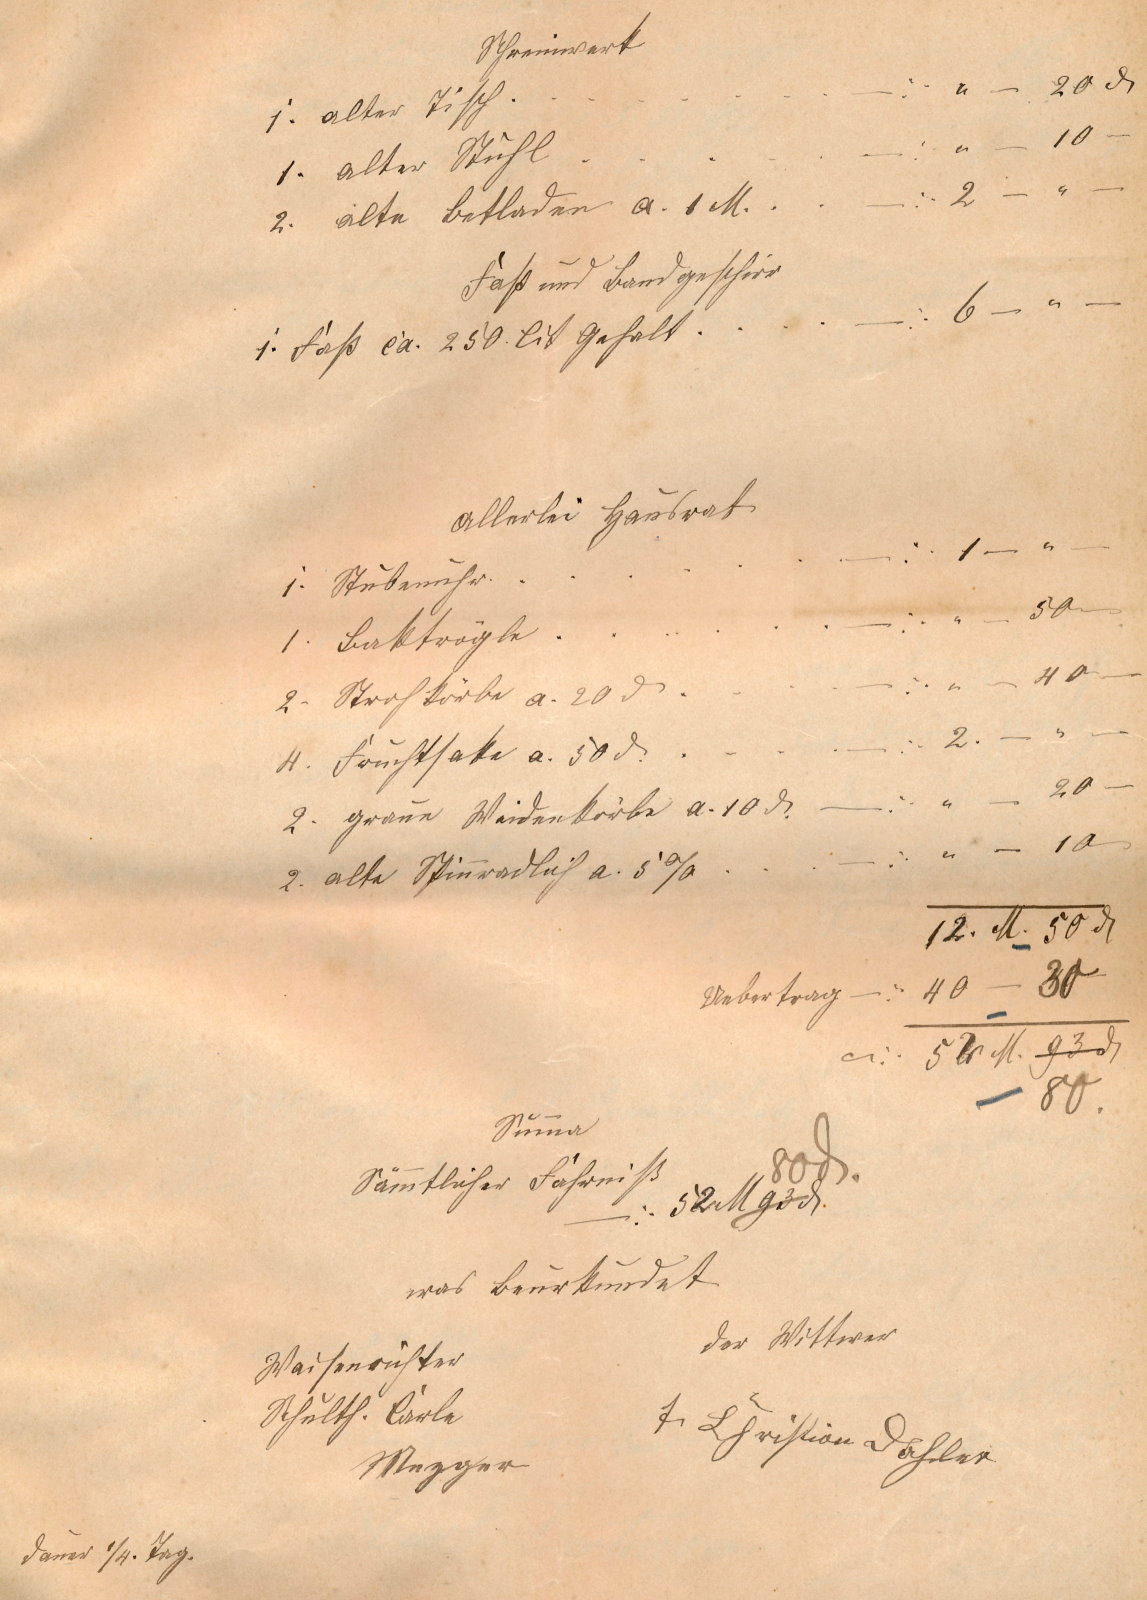 Schreinwerk
1. alter Tisch . . . . . . . . —:· " — 20 ₰
1. alter Stuhl . . . . —:· " — 10 —
2. alte Betladen a. 1 M. . . —:· 2 — " —
Faß und Bandgeschirr
1. Faß ca. 250. Lit Gehalt . . . . —:· 6 — " —
Allerlei Hausrat
1. Stubenuhr. . . . . . . —:· 1 — " —
1. Baktrögle . . . . . . —:· " — 50 —
2. Strohkörbe a. 20 ₰ . . . —:· " — 40 —
4. Fruchtsake a. 50 ₰. . . . —:· 2. — " —
2. graue Weidenkörbe a. 10 ₰. —:· " — 20 —
2. alte Spinnradlich a. 5 ₰ . . . —:· " — 10 —
12. M. 50 ₰
Uebertrag —:· 40 — 30
—:· 52 M. 93 ₰
— 80.
Summa
Sämtlicher Fahrniß 80 ₰.
—:· 52 M 93 ₰.
was beurkundet
der Wittwer
Waisenrichter
Schulth. Carle
t. Christian Dahler
Mezger
Dauer 1/4. Tag.